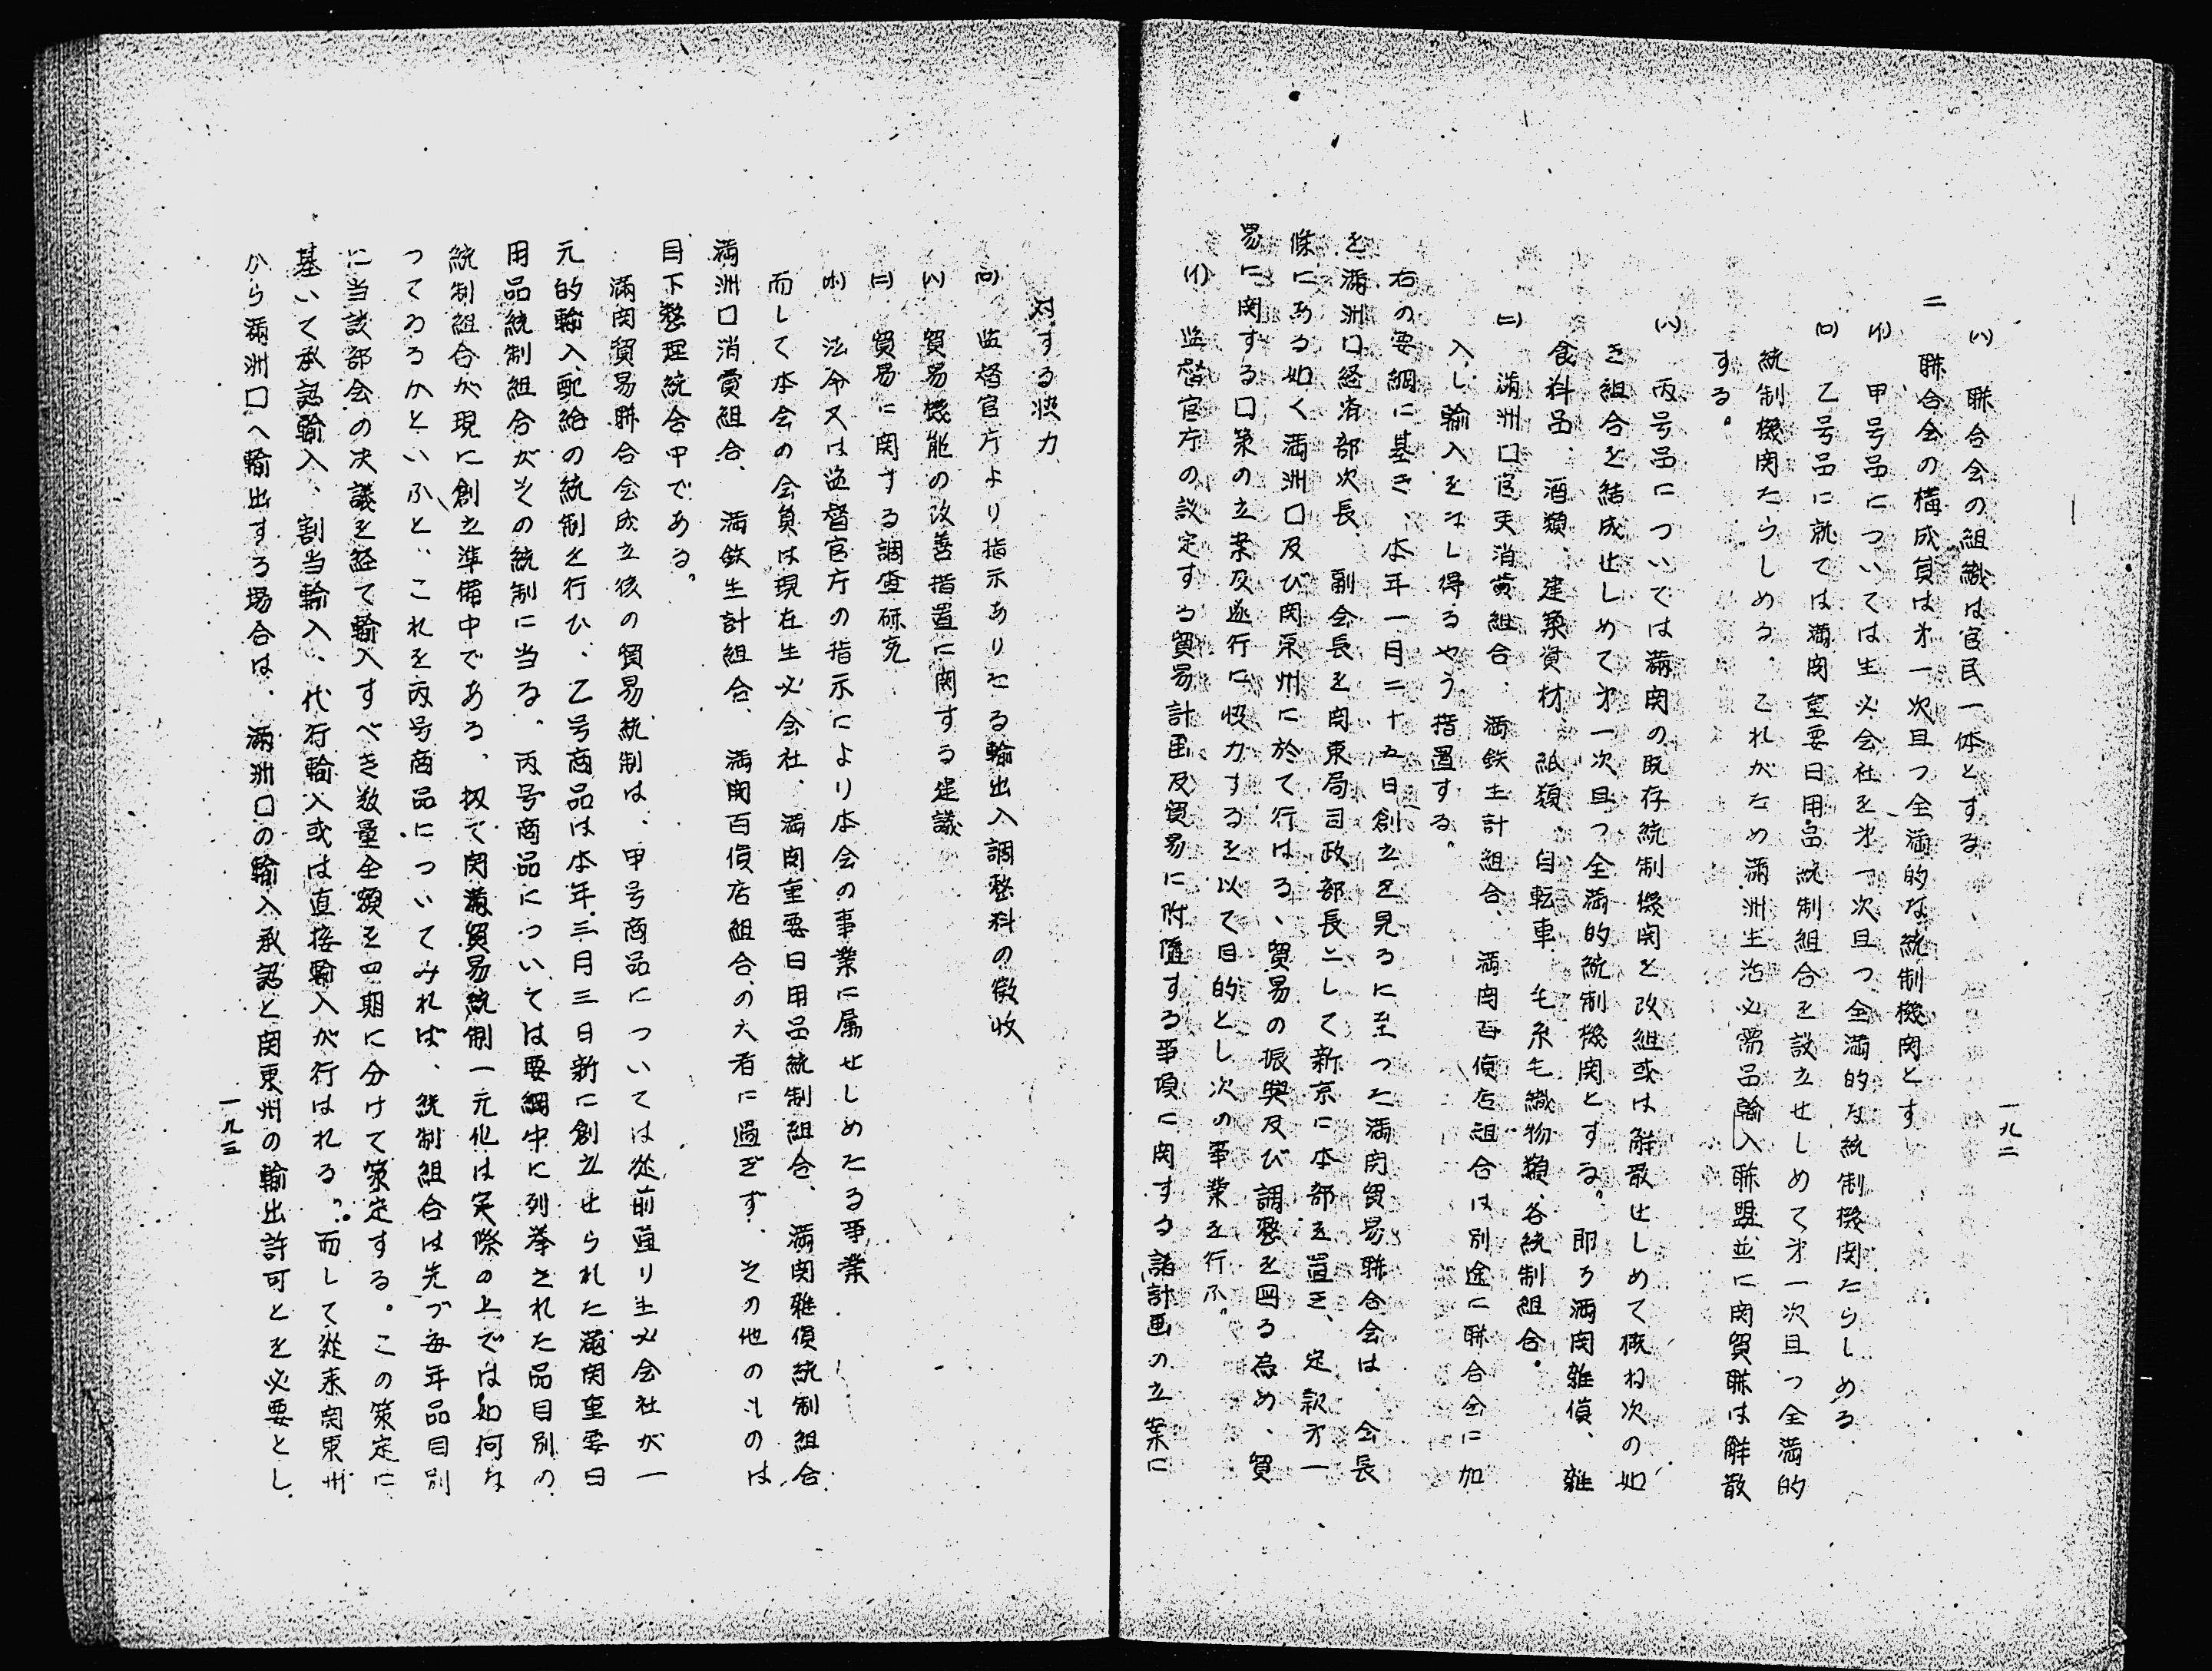 一九二
(ハ) 聯合会の組織は官民一体とする
二 聯合会の構成員は才一次且つ全満的な統制機関とす
(イ) 甲号品については生必会社を才一次且つ全満的な統制機関たらしめる
(ロ) 乙号品に就ては満関重要日用品統制組合を設立せしめて才一次且つ全満的
統制機関たらしめる、之れがため満洲生活必需品輸入聯盟並に関貿聯は解散
する。
(ハ) 丙号品については満関の既存統制機関を改組或は解散せしめて概ね次の如
き組合を結成せしめて才一次且つ全満的統制機関とする。即ち満関雑貨、雑
食料品、酒類、建築資材、紙類、自転車、毛糸毛織物類、各統制組合。
(ニ) 満洲口官吏消費組合、満鉄生計組合、満関百貨店組合は別途に聯合会に加
入し輸入をなし得るやう措置する。
右の要綱に基き、本年一月二十五日創立を見るに至つた満関貿易聯合会は、会長
を満洲口経済部次長、副会長を関東局司政部長として新京に本部を置き、定款才一
條にある如く満洲口及び関東州に於て行はる、貿易の振興及び調整を図る為め、貿
易に関する口策の立案及遂行に協力するを以て目的とし次の事業を行ふ。
(イ) 監督官庁の議定する貿易計画及貿易に附随する事項に関する諸計画の立案に
対する協力
(ロ) 監督官庁より指示ありたる輸出入調整料の徴收
(ハ) 貿易機能の改善措置に関する建議
(ニ) 貿易に関する調査研究
(ホ) 法令又は監督官庁の指示により本会の事業に属せしめたる事業
而して本会の会員は現在生必会社、満関重要日用品統制組合、満関雑貨統制組合
満洲口消費組合、満鉄生計組合、満関百貨店組合の六者に過ぎず、その他のものは
目下整理統合中である。
満関貿易聯合会成立後の貿易統制は、甲号商品については従前通り生必会社が一
元的輸入配給の統制を行ひ、乙号商品は本年三月三日新に創立せられた満関重要日
用品統制組合がその統制に当る。丙号商品については要綱中に列挙された品目別の
統制組合が現に創立準備中である、扨て関満貿易統制一元化は実際の上では如何な
つてゐるかといふと、これを丙号商品についてみれば、統制組合は先づ毎年品目別
に当該部会の決議を経て輸入すべき数量金額を四期に分けて策定する。この策定に
基いて承認輸入、割当輸入、代行輸入或は直接輸入が行はれる。而して従来関東州
から満洲口へ輸出する場合は、満洲口の輸入承認と関東州の輸出許可とを必要とし
一九三